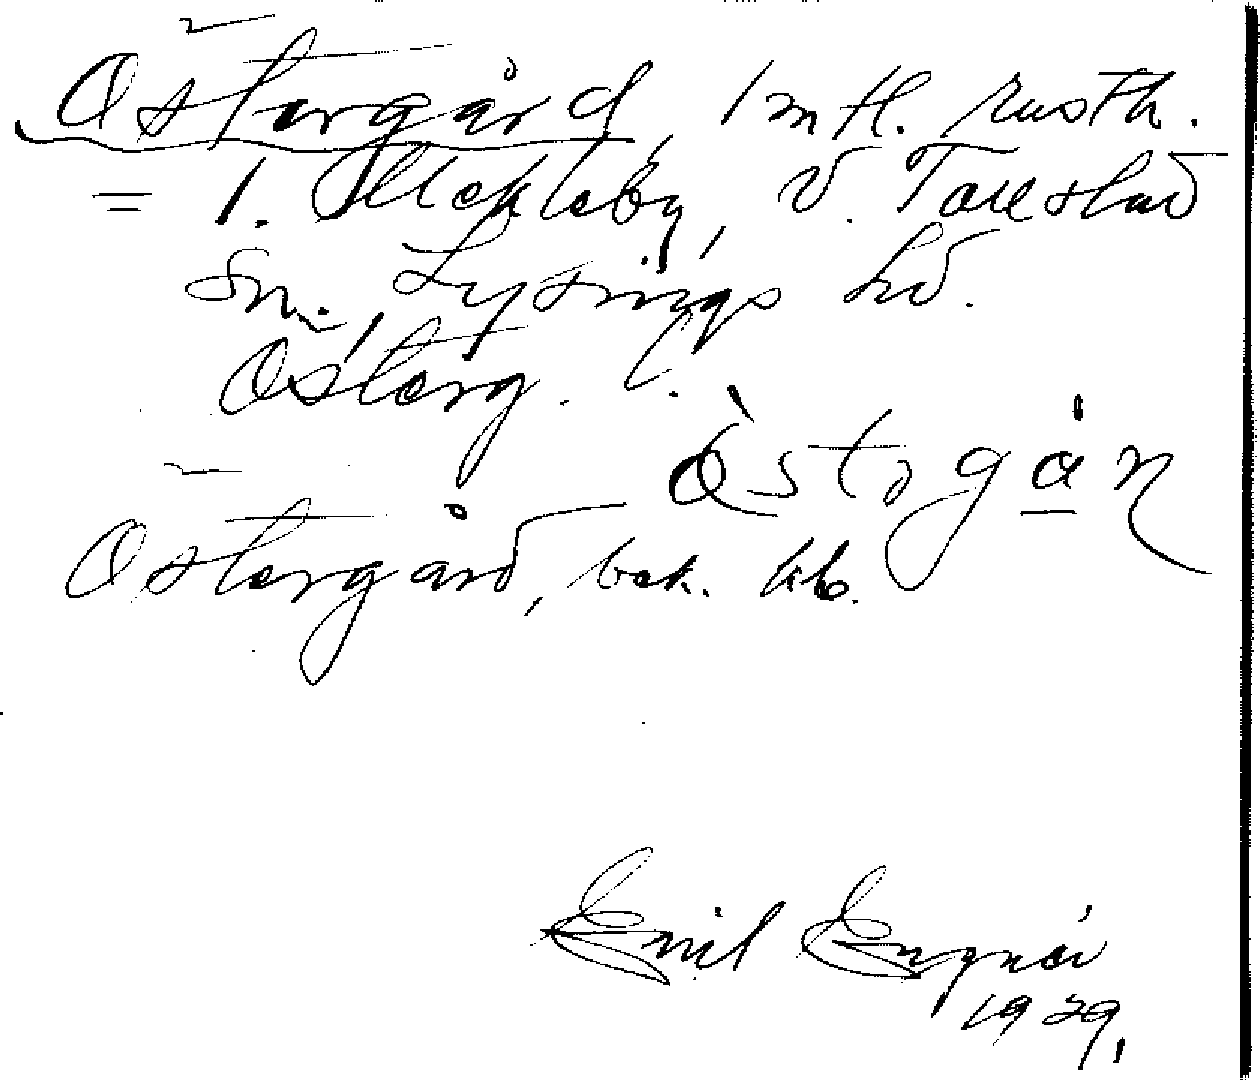 Östergård, 1 mtl. rusth.
= 1. Stekleby, V. Tollstad
sn., Lysings hd.
Österg. l.
Östergård, bek. kb.
Emil Engnér
1929.